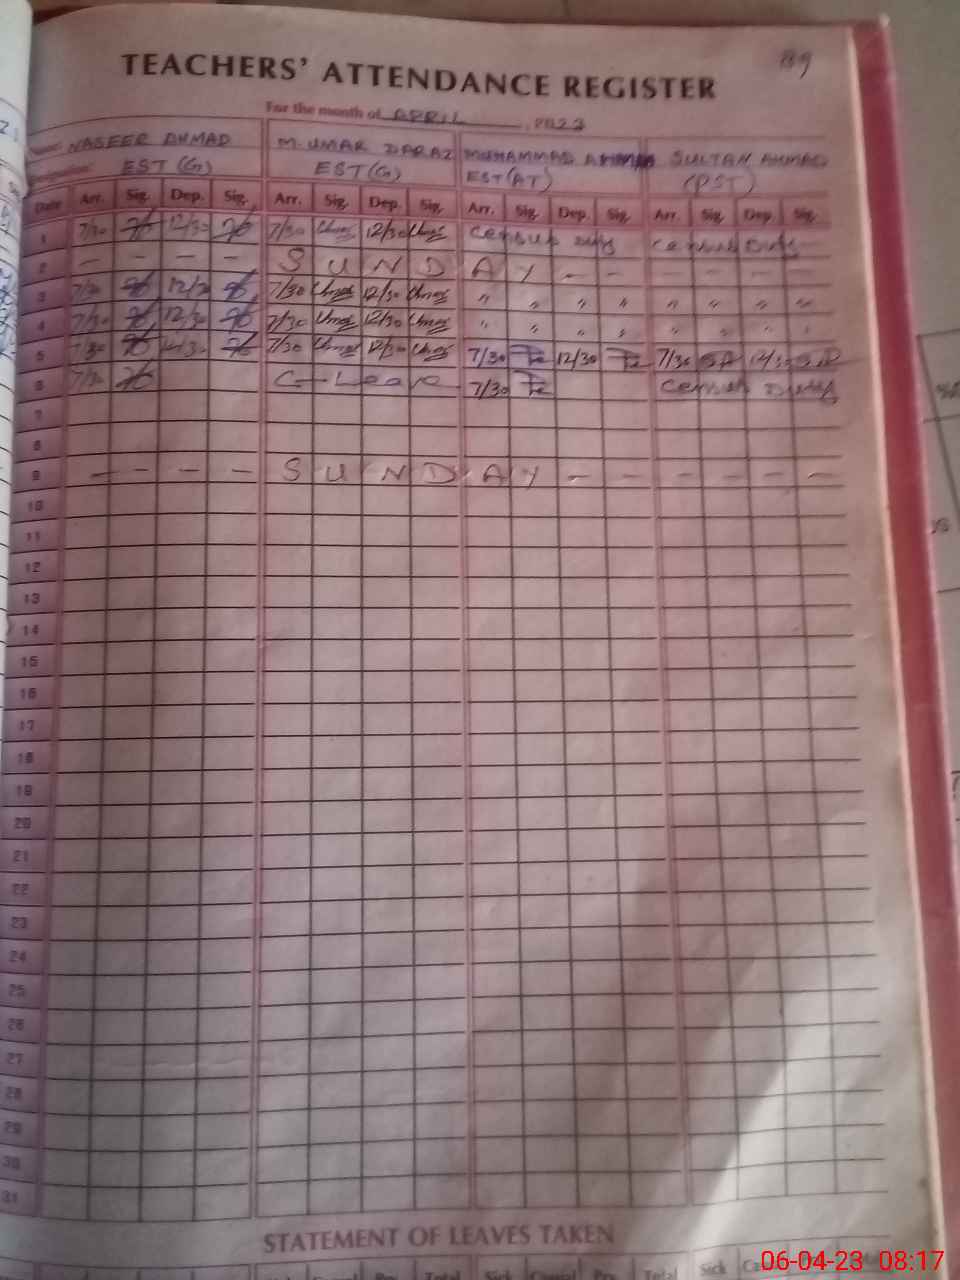 89
TEACHERS' ATTENDANCE REGISTER
For the month of APRIL , 2023
Name: NASEER AHMAD M. UMAR DARAZ MUHAMMAD SULTAN AHMAD
Designation: EST (G) EST (G) EST (AT) (PST)
Date Arr. Sig. Dep. Sig. Arr. Sig. Dep. Sig. Arr. Sig. Dep. Sig. Arr. Sig. Dep. Sig.
1 7/30 12/30 7/30 Umar 12/30 Umar Census Duty Census Duty
2 - - - - S U N D A Y - - - - - -
3 7/30 12/30 7/30 Umar 12/30 Umar " " " " " " " "
4 7/30 12/30 7/30 Umar 12/30 Umar " " " " " " " "
5 7/30 12/30 7/30 Umar 12/30 Umar 7/30 12/30 7/30 SA 12/30 SA
6 7/30 C-Leave 7/30 Census Duty
7
8
9 - - - - S U N D A Y - - - - - -
10
11
12
13
14
15
16
17
18
19
20
21
22
23
24
25
26
27
28
29
30
31
STATEMENT OF LEAVES TAKEN
Total Sick Casual Pre. Total Sick
06-04-23 08:17